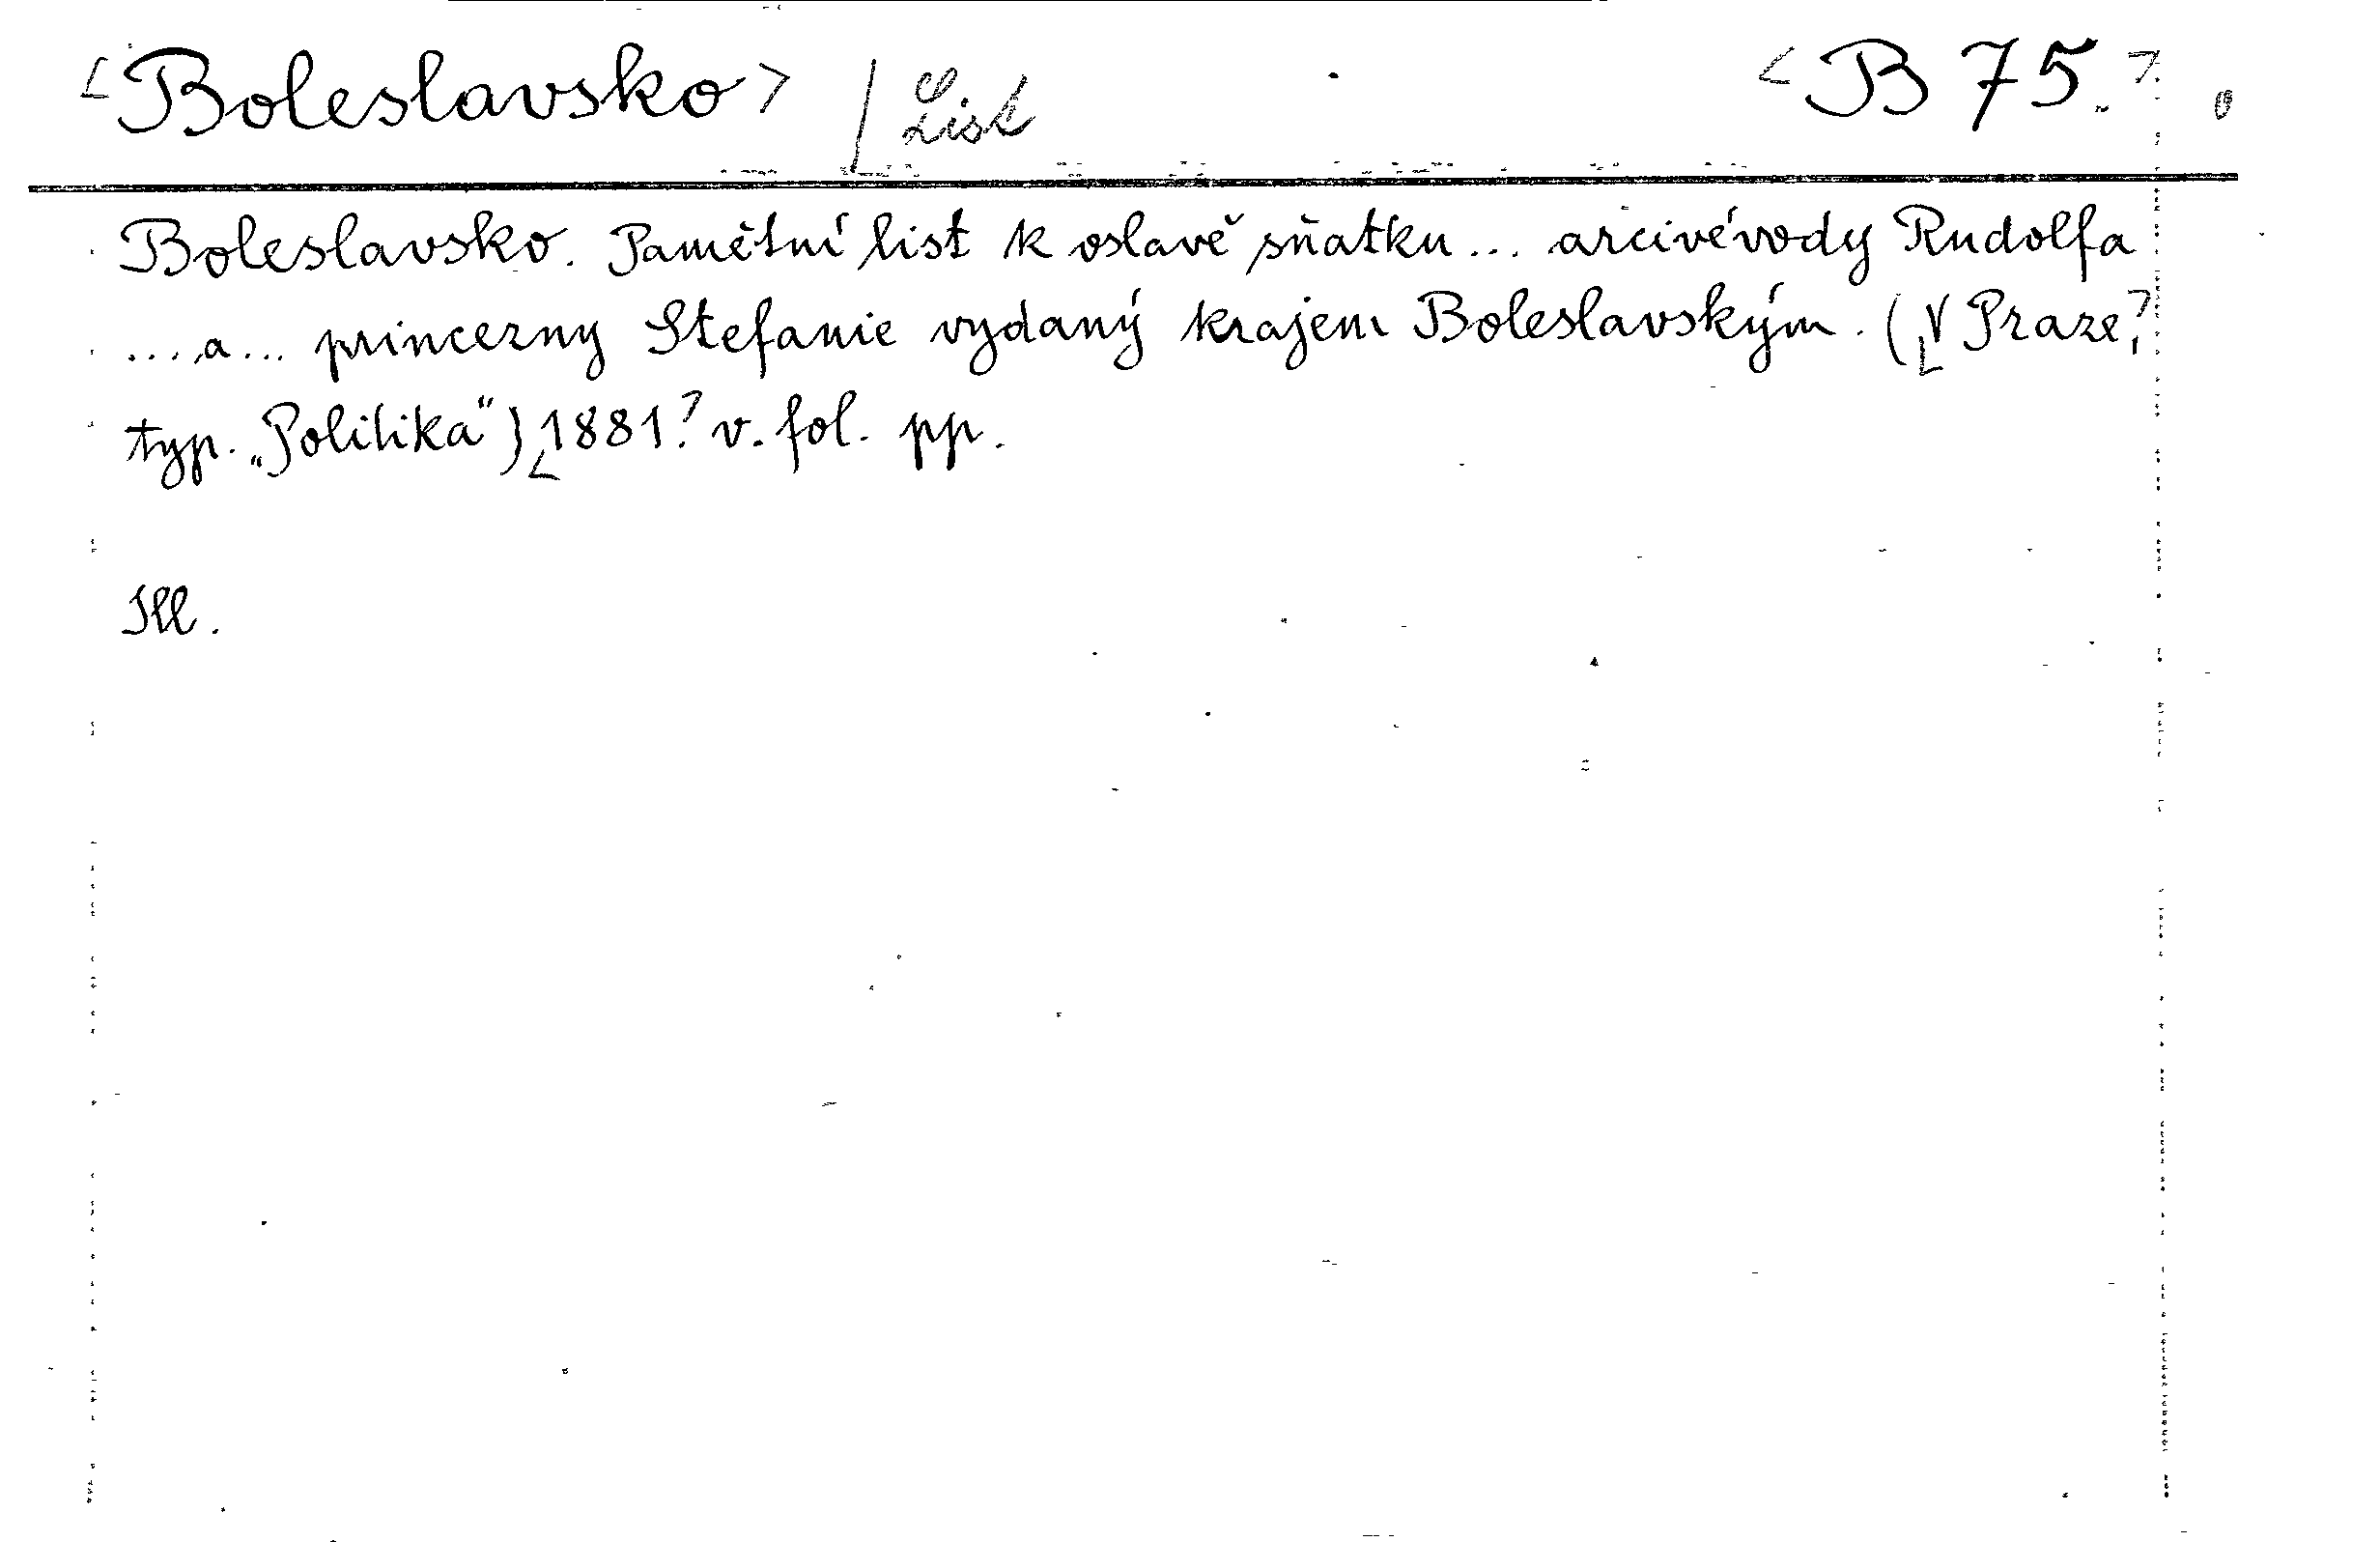 <Boleslavsko> / List <B 75.>
Boleslavsko. Pamětní list k oslavě sňatku... arcivévody Rudolfa
... a... princezny Stefanie vydaný krajem Boleslavským. (<V Praze,>
typ. „Politika“) <1881.> v. fol. pp.
Ill.